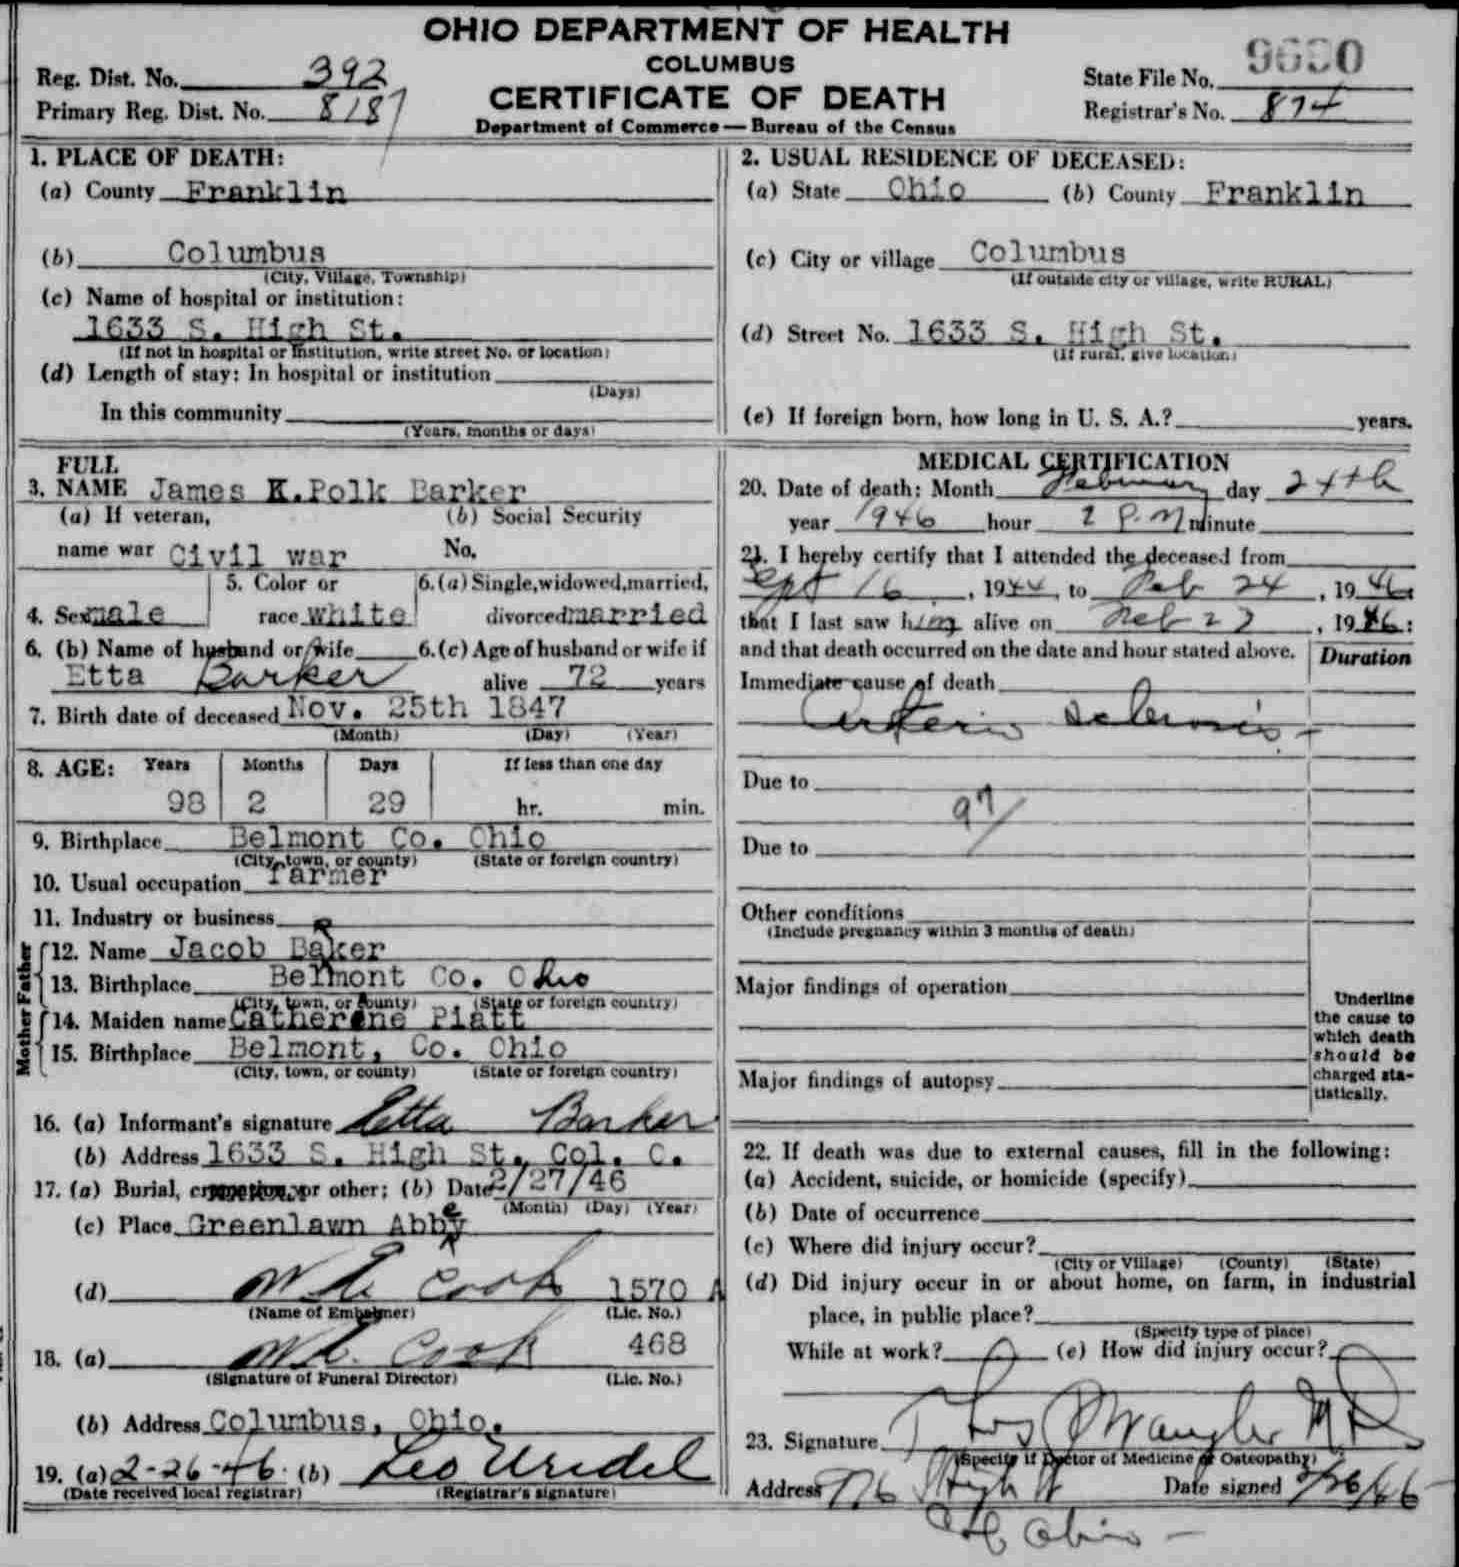 OHIO DEPARTMENT OF HEALTH
COLUMBUS
CERTIFICATE OF DEATH
Department of Commerce — Bureau of the Census
Reg. Dist. No. 392
Primary Reg. Dist. No. 8187
State File No.
Registrar's No. 874
1. PLACE OF DEATH:
(a) County Franklin
(b) Columbus
(City, Village, Township)
(c) Name of hospital or institution:
1633 S. High St.
(If not in hospital or institution, write street No. or location)
(d) Length of stay: In hospital or institution
(Days)
In this community
(Years, months or days)
2. USUAL RESIDENCE OF DECEASED:
(a) State Ohio (b) County Franklin
(c) City or village Columbus
(If outside city or village, write RURAL)
(d) Street No. 1633 S. High St.
(If rural, give location)
(e) If foreign born, how long in U. S. A.? years.
FULL
3. NAME James K.Polk Barker
(a) If veteran, (b) Social Security
name war Civil war No.
5. Color or 6.(a) Single, widowed, married,
4. Sex male race white divorced married
6. (b) Name of husband or wife 6.(c) Age of husband or wife if
Etta Barker alive 72 years
7. Birth date of deceased Nov. 25th 1847
(Month) (Day) (Year)
8. AGE: Years Months Days If less than one day
98 2 29 hr. min.
9. Birthplace Belmont Co. Ohio
(City, town, or county) (State or foreign country)
10. Usual occupation farmer
11. Industry or business
Father
12. Name Jacob Baker
R
13. Birthplace Belmont Co. Ohio
(City, town, or county) (State or foreign country)
Mother
14. Maiden name Catherene Piatt
15. Birthplace Belmont, Co. Ohio
(City, town, or county) (State or foreign country)
16. (a) Informant's signature Etta Barker
(b) Address 1633 S. High St., Col. O.
17. (a) Burial, cremation, or other; (b) Date 2/27/46
(Month) (Day) (Year)
(c) Place Greenlawn Abbey
(d) Cook 1570 A
(Name of Embalmer) (Lic. No.)
18. (a) Cook 468
(Signature of Funeral Director) (Lic. No.)
(b) Address Columbus, Ohio.
19. (a) 2-26-46 (b) Leo
(Date received local registrar) (Registrar's signature)
MEDICAL CERTIFICATION
20. Date of death: Month February day 24th
year 1946 hour 2 P.M minute
21. I hereby certify that I attended the deceased from
Sept 16, 1944, to Feb 24, 1946
that I last saw him alive on Feb, 1946:
and that death occurred on the date and hour stated above. Duration
Immediate cause of death
Arterio sclerosis
Due to
97
Due to
Other conditions
(Include pregnancy within 3 months of death)
Major findings of operation
Major findings of autopsy
Underline
the cause to
which death
should be
charged sta-
tistically.
22. If death was due to external causes, fill in the following:
(a) Accident, suicide, or homicide (specify)
(b) Date of occurrence
(c) Where did injury occur?
(City or Village) (County) (State)
(d) Did injury occur in or about home, on farm, in industrial
place, in public place?
(Specify type of place)
While at work? (e) How did injury occur?
23. Signature M D
(Specify if Doctor of Medicine or Osteopathy)
Address High St Date signed 2/26/46
Ohio